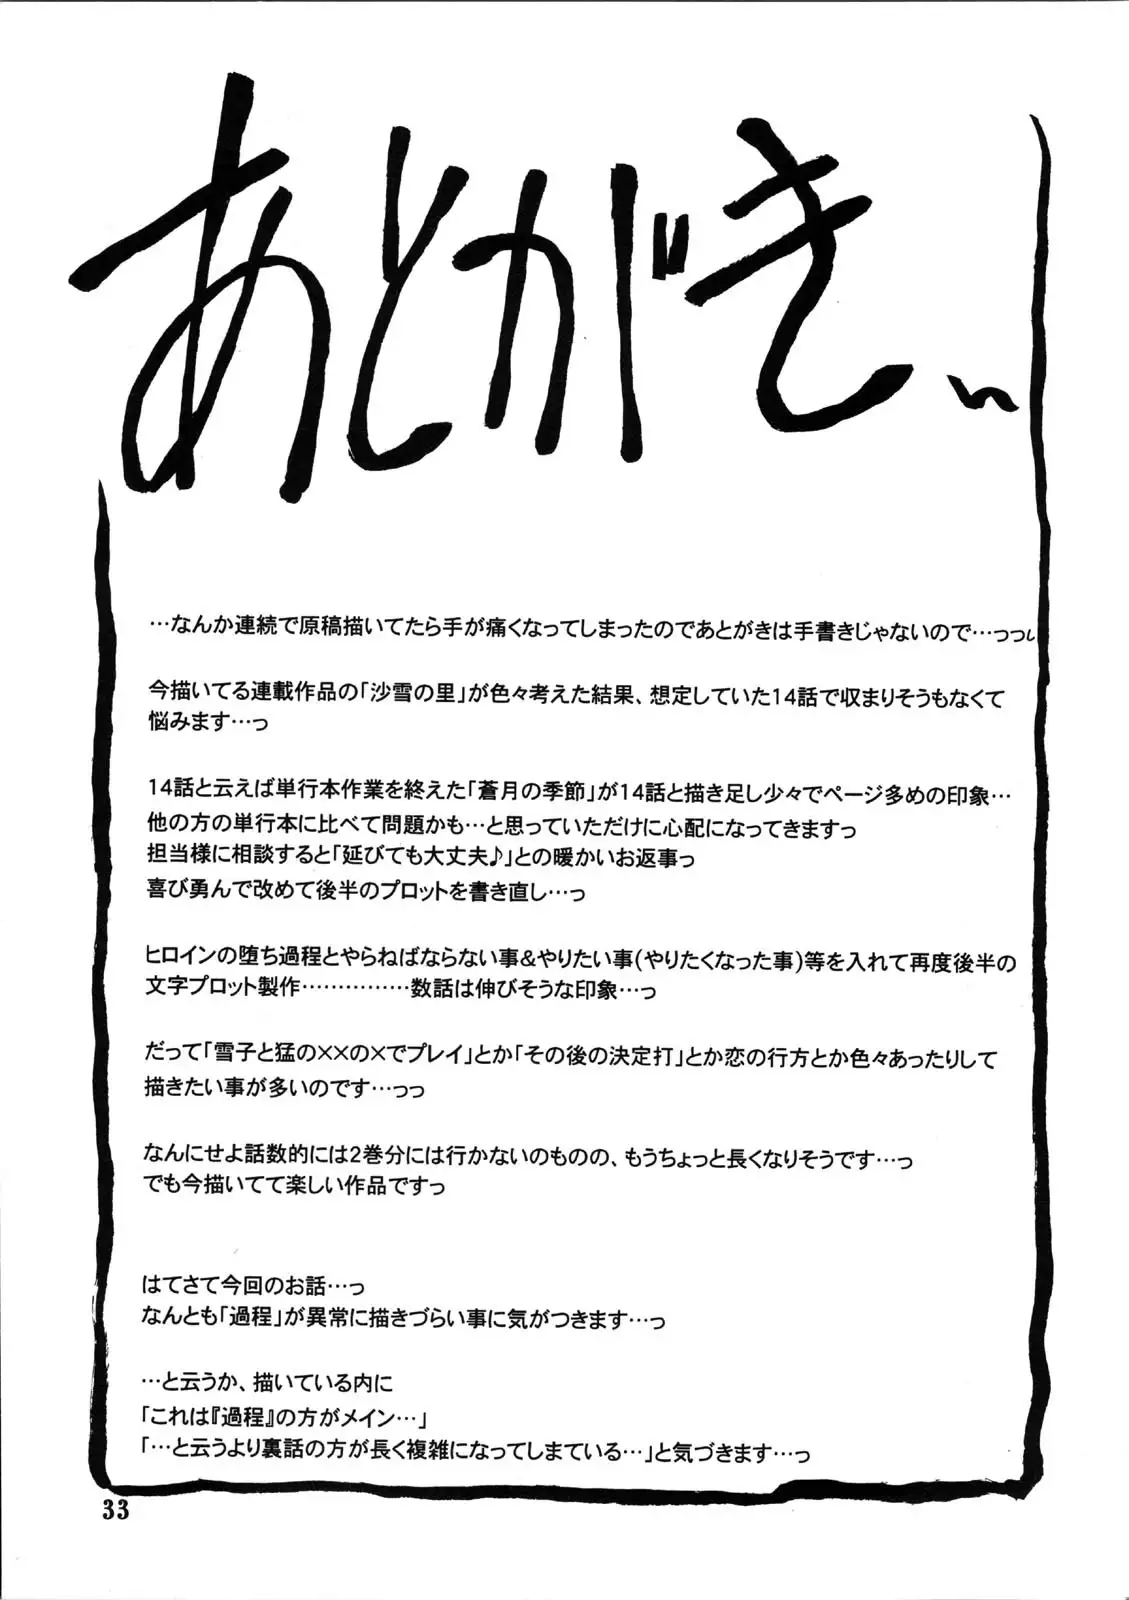 あとがきぃ
…なんか連続で原稿描いてたら手が痛くなってしまったのであとがきは手書きじゃないので…っっぃ
今描いてる連載作品の「沙雪の里」が色々考えた結果、想定していた14話で収まりそうもなくて
悩みます…っ
14話と云えば単行本作業を終えた「蒼月の季節」が14話と描き足し少々でページ多めの印象…
他の方の単行本に比べて問題かも…と思っていただけに心配になってきますっ
担当様に相談すると「延びても大丈夫♪」との暖かいお返事っ
喜び勇んで改めて後半のプロットを書き直し…っ
ヒロインの堕ち過程とやらねばならない事&やりたい事(やりたくなった事)等を入れて再度後半の
文字プロット製作……………数話は伸びそうな印象…っ
だって「雪子と猛の××の×でプレイ」とか「その後の決定打」とか恋の行方とか色々あったりして
描きたい事が多いのです…っっ
なんにせよ話数的には2巻分には行かないのものの、もうちょっと長くなりそうです…っ
でも今描いてて楽しい作品ですっ
はてさて今回のお話…っ
なんとも「過程」が異常に描きづらい事に気がつきます…っ
…と云うか、描いている内に
「これは『過程』の方がメイン…」
「…と云うより裏話の方が長く複雑になってしまている…」と気づきます…っ
33